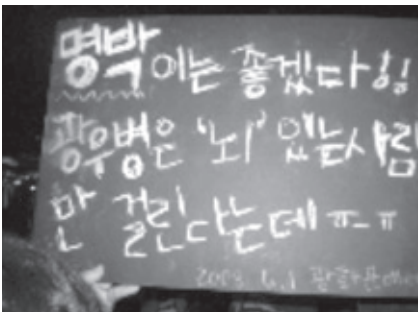 명박이는 좋겠다!!
광우병은 '뇌' 있는사람
만 걸린다는데 ㅠ-ㅠ
2008. 6. 1 광화문에서